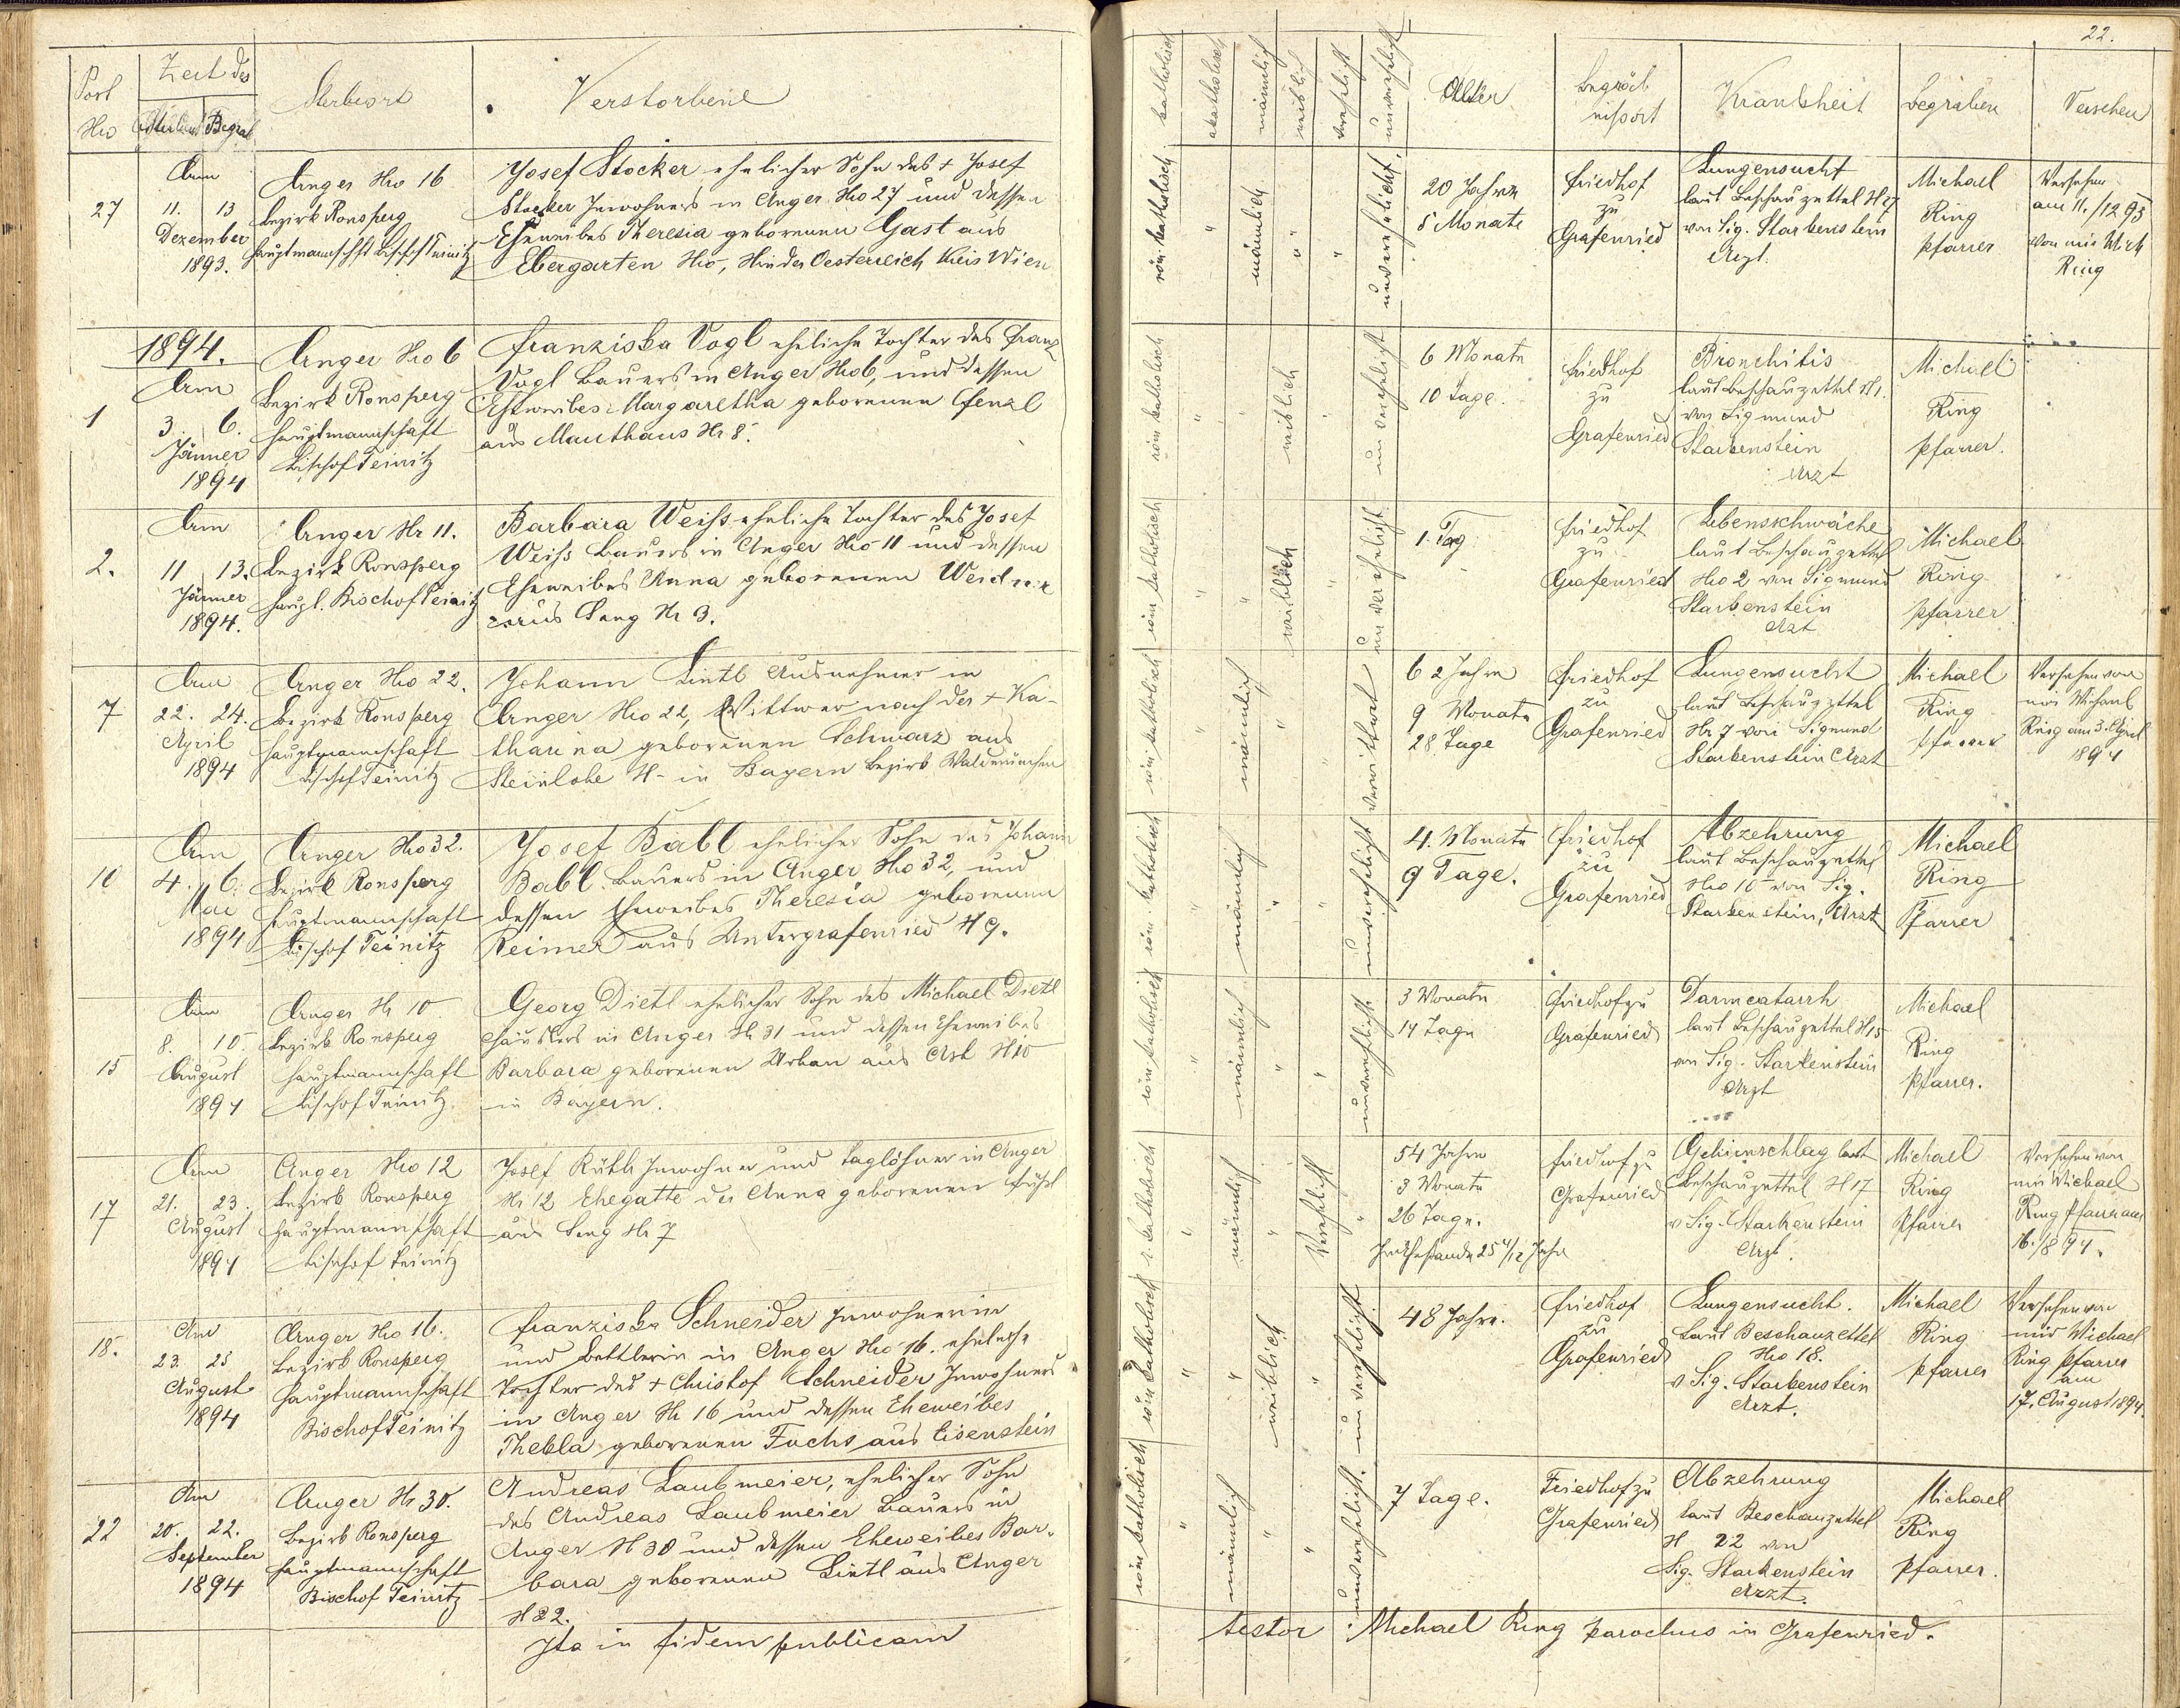 22.
Post
Nro
Zeit des
Sterbens Begrab
Sterbeort
Verstorbene
katholisch
akatholisch
männlich
weiblich
verehelicht
unverehelicht
Alter
Begräb
nißort
Krankheit
Begraben
Versehen
27
Am
11. 13
Dezember
1893.
Anger Nro 16
Bezirk Ronsperg
Hauptmannschft Bischofteinitz
Josef Stocker ehelicher Sohn des + Josef
Stocker Inwohners in Anger Nro 27 und dessen
Eheweibes Theresia geborenen Gast aus
Ebergarten Nro -, Oesterreich Kreis Wien
röm katholisch
männlich
unverehelicht
20 Jahre
5 Monate
Friedhof
zu
Grafenried
Lungensucht
laut Beschauzettel N 27
von Sig. Starkenstein
Arzt.
Michael
Ring
Pfarrer
Versehen
am 11./12 93
von mir Mich
Ring
1894.
1
Am
3. 6.
Jänner
1894
Anger Nro 6
Bezirk Ronsperg
Hauptmannschaft
Bischof Teinitz
Franziska Vogl eheliche Tochter des Franz
Vogl Bauers in Anger Nro 6, und dessen
Eheweibes Margaretha geborenen Fenzl
aus Mauthaus Nr 8.
röm katholisch
weiblich
unverehelicht
6 Monate
10 Tage.
Friedhof
zu
Grafenried
Bronchitis
laut Beschauzettel N 1.
von Sigmund
Starkenstein
Arzt
Michael
Ring
Pfarrer.
2.
Am
11 13.
Jänner
1894.
Anger Nr 11.
Bezirk Ronsperg
Haupt. Bischof Teinitz
Barbara Weiß eheliche Tochter des Josef
Weiß Bauers in Anger Nro 11 und dessen
Eheweibes Anna geborenen Weidner
aus Seng Nr 3.
röm katholisch
weiblich
unverehelicht
1. Tag
Friedhof
zu
Grafenried
Lebensschwäche
laut Beschauzettel
Nro 2 von Sigmund
Starkenstein
Arzt
Michael
Ring
Pfarrer
7
Am
22. 24.
April
1894
Anger Nro 22.
Bezirk Ronsperg
Hauptmannschaft
Bischof Teinitz
Johann Lintl Ausnehmer in
Anger Nro 22, Wittwer nach der + Ka-
tharina geborenen Schwarz aus
Steinlohe N - in Bayern Bezirk Waldmünchen
röm katholisch
männlich
verwittwet
62 Jahre
9 Monate
28 Tage
Friedhof
zu
Grafenried
Lungensucht
laut Beschauzettel
Nr 7 von Sigmund
Starkenstein Arzt
Michael
Ring
Pfarrer
Versehen von
mir Michael
Ring am 3. April
1894
10
Am
4. 6.
Mai
1894
Anger Nro 32.
Bezirk Ronsperg
Hauptmannschaft
Bischof Teinitz
Josef Babl ehelicher Sohn des Johann
Babl Bauers in Anger Nro 32, und
dessen Eheweibes Theresia geborenen
Reimer aus Untergrafenried N 9.
röm. katholisch
männlich
unverehelicht
4. Monate
9 Tage.
Friedhof
zu
Grafenried
Abzehrung
laut Beschauzettel
Nro 10 von Sig.
Starkenstein, Arzt
Michael
Ring
Pfarrer
15
Am
8. 10.
August
1894
Anger Nr 10
Bezirk Ronsperg
Hauptmannschaft
Bischof Teinitz
Georg Dietl ehelicher Sohn des Michael Dietl
Häuslers in Anger Nr 31 und dessen Eheweibes
Barbara geborenen Urban aus Ast Nro
in Bayern.
röm katholisch
männlich
unverehelicht
3 Monate
14 Tage
Friedhof zu
Grafenried
Darmcatarrh
laut Beschauzettel N 15
von Sig. Starkenstein
Arzt
Michael
Ring
Pfarrer.
17
Am
21. 23.
August
1894
Anger Nro 12
Bezirk Ronsperg
Hauptmannschaft
Bischof Teinitz
Josef Ruth Inwohner und Taglöhner in Anger
Nr 12 Ehegatte der Anna geborenen
aus Seng Nr 7
r. katholisch
männlich
Verehelicht
54 Jahre
3 Monate
26 Tage.
Im Ehestande 25 4/12 Jahre
Friedhof zu
Grafenried
Gehirnschlag laut
Beschauzettel N 17
v Sig. Starkenstein
Arzt.
Michael
Ring
Pfarrer
Versehen von
mir Michael
Ring Pfarrer am
16./8 94.
18.
Am
23. 25
August
1894
Anger Nro 16.
Bezirk Ronsperg
Hauptmannschaft
Bischof Teinitz
Franziska Schneider Inwohnerin
und Bettlerin in Anger Nro 16. eheliche
Tochter des + Christof Schneider Inwohners
in Anger Nr 16 und dessen Eheweibes
Thekla geborenen Fuchs aus Eisenstein
röm katholisch
weiblich
unverehelicht
48 Jahre.
Friedhof
zu
Grafenried
Lungensucht.
Laut Beschauzettel
Nro 18.
v Sig. Starkenstein
Arzt.
Michael
Ring
Pfarrer
Versehen von
mir Michael
Ring Pfarrer
am
17. August 1894.
22
Am
20. 22.
September
1894
Anger Nr 30.
Bezirk Ronsperg
Hauptmannschaft
Bischof Teinitz
Andreas Laubmeier, ehelicher Sohn
des Andreas Laubmeier Bauers in
Anger N 30 und dessen Eheweibes Bar-
bara geborenen Lintl aus Anger
N 22.
röm katholisch
männlich
unverehelicht.
7 Tage.
Friedhof zu
Grafenried
Abzehrung
laut Beschauzettel
N 22 von
Sig. Starkenstein
Arzt.
Michael
Ring
Pfarrer.
Ita in fidem publicam
testor Michael Ring parochus in Grafenried.